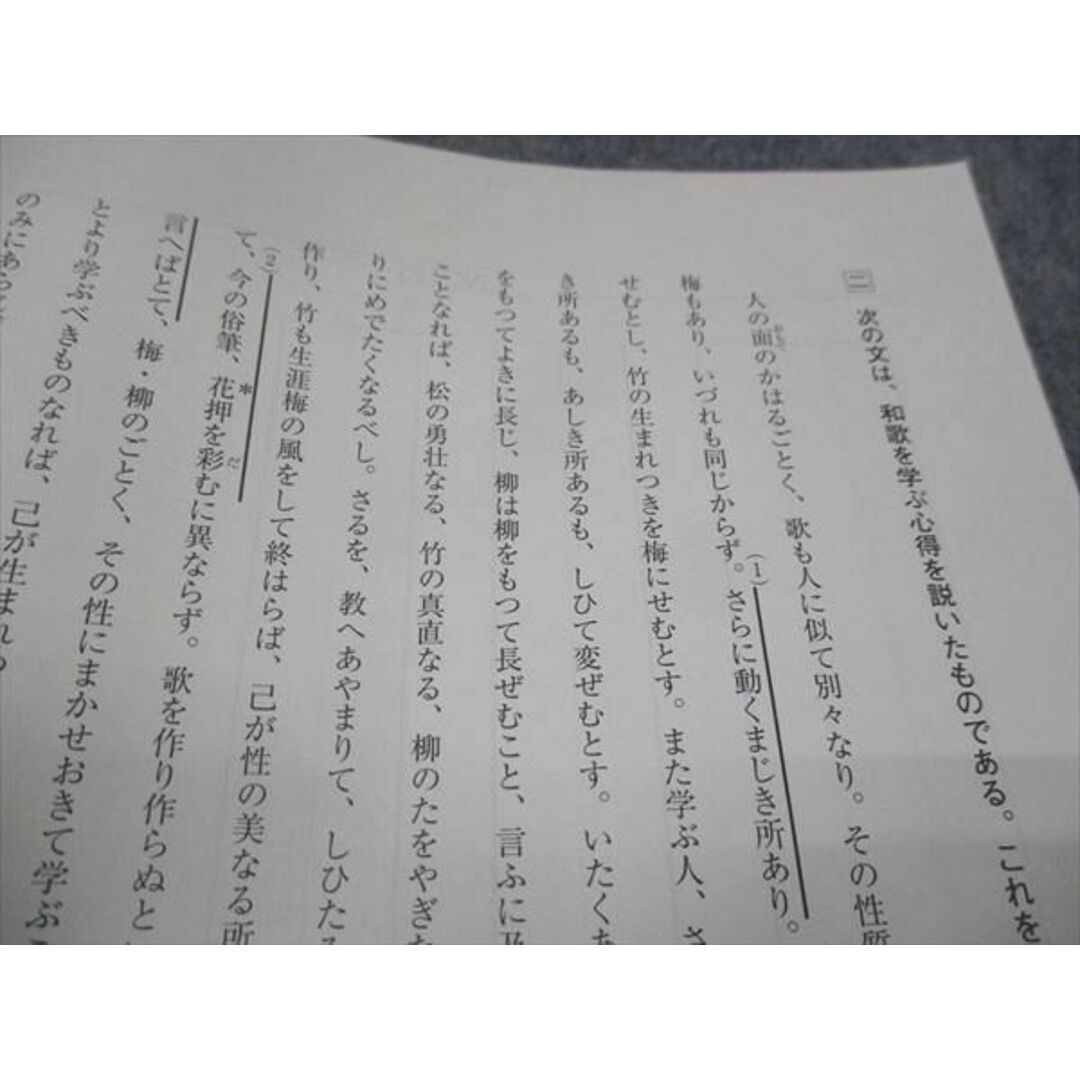 二 次の文は、和歌を学ぶ心得を説いたものである。これを
人の面のかはるごとく、歌も人に似て別々なり。その性質
おもて
梅もあり、いづれも同じからず。(1)さらに動くまじき所あり。
せむとし、竹の生まれつきを梅にせむとす。また学ぶ人、さ
き所あるも、あしき所あるも、しひて変ぜむとす。いたくあ
をもつてよきに長じ、柳は柳をもつて長ぜむこと、言ふに及
ことなれば、松の勇壮なる、竹の真直なる、柳のたをやぎた
りにめでたくなるべし。さるを、教へあやまりて、しひた
作り、竹も生涯梅の風をして終はらば、己が性の美なる所
て、(2)今の俗筆、*花押を彩むに異ならず。歌を作り作らぬと
だ
言へばとて、梅・柳のごとく、その性にまかせおきて学ぶ
とより学ぶべきものなれば、己が生まれつ
のみにあらず